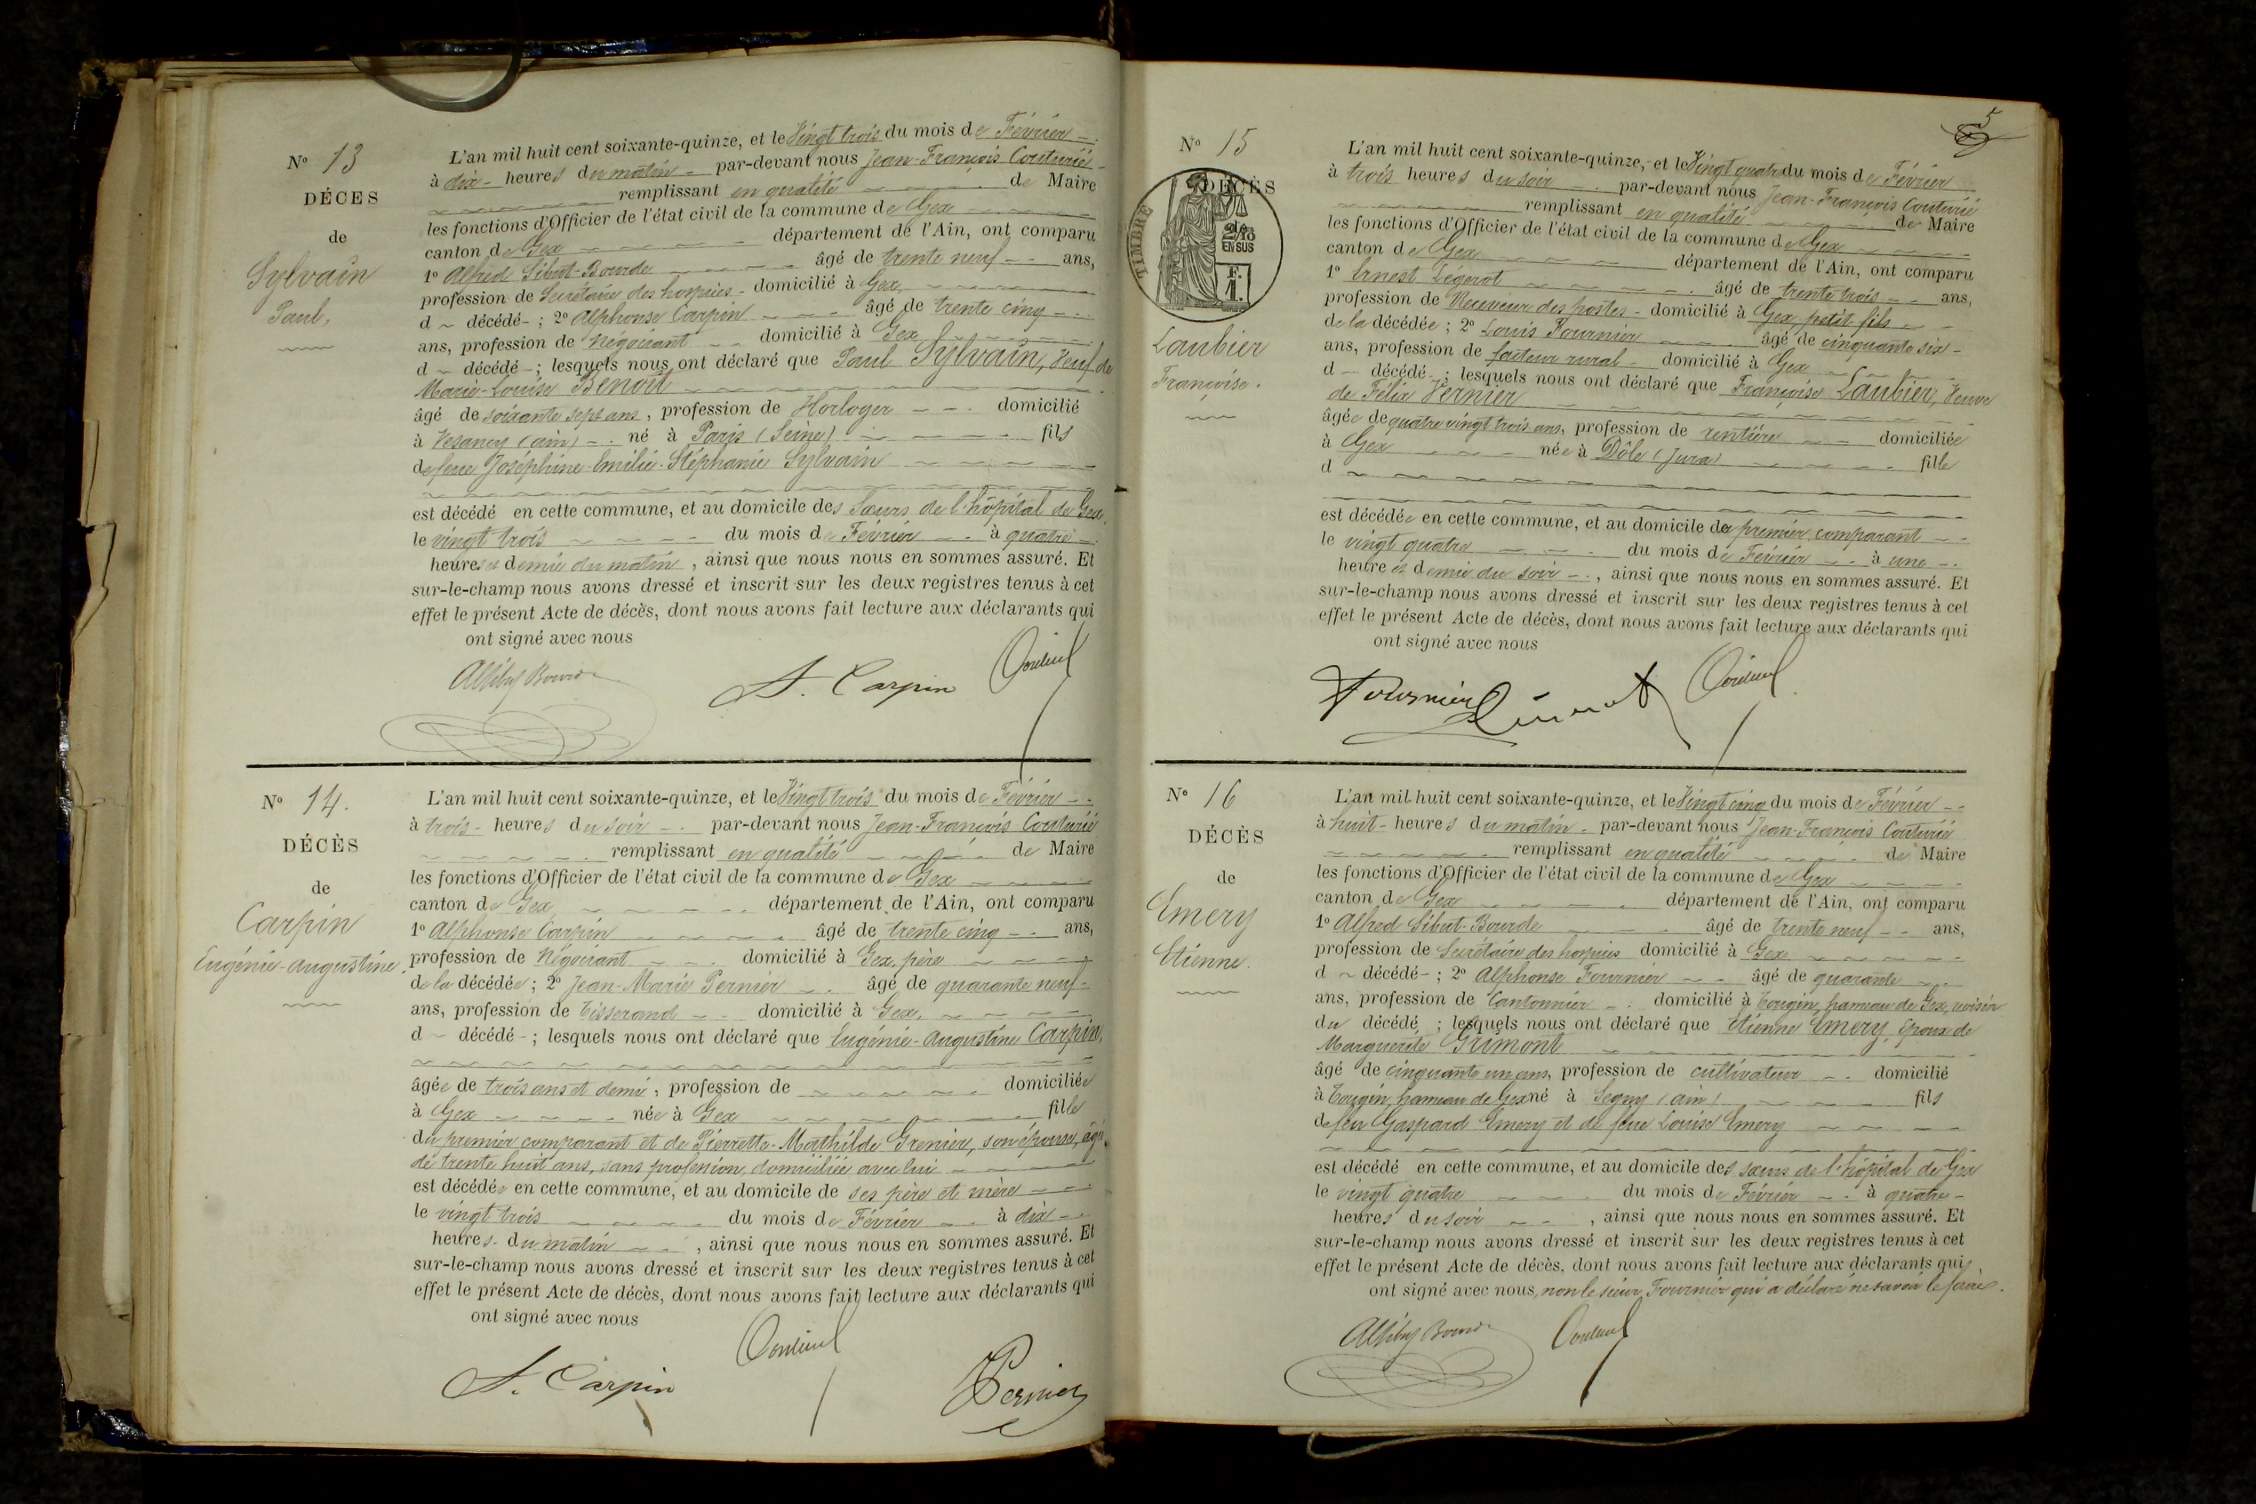 Nº 13
DÉCES
de
Sylvain
Paul.
L'an mil huit cent soixante-quinze, et le Vingt trois du mois de Février
à dix heures du matin par-devant nous Jean-François Couturié
remplissant en qualité de Maire
les fonctions d'Officier de l'état civil de la commune de Gex
canton de Gex département de l'Ain, ont comparu
1º Alfred Sibut-Bourde âgé de trente neuf ans,
profession de Secrétaire des hospices domicilié à Gex,
d décédé ; 2º Alphonse Carpin âgé de trente cinq
ans, profession de Négociant domicilié à Gex
d décédé ; lesquels nous ont déclaré que Paul Sylvain, Veuf de
Marie-Louise Benoit
âgé de soixante sept ans, profession de Horloger domicilié
à Vesancy (ain) né à Paris (Seine) fils
de feue Joséphine Emilie Stéphanie Sylvain
est décédé en cette commune, et au domicile des Sœurs de l'hôpital de Gex,
le vingt trois du mois de Février à quatre
heures et demie du matin, ainsi que nous nous en sommes assuré. Et
sur-le-champ nous avons dressé et inscrit sur les deux registres tenus à cet
effet le présent Acte de décès, dont nous avons fait lecture aux déclarants qui
ont signé avec nous
A. Carpin
Nº 14.
DÉCÈS
de
Carpin
Eugénie-Augustine.
L'an mil huit cent soixante-quinze, et le Vingt trois du mois de Février
à trois heures du soir par-devant nous Jean-François Couturié
remplissant en qualité de Maire
les fonctions d'Officier de l'état civil de la commune de Gex
canton de Gex département de l'Ain, ont comparu
1º Alphonse Carpin âgé de trente cinq ans,
profession de Négociant domicilié à Gex, père
de la décédée ; 2º Jean-Marie Pernier âgé de quarante neuf
ans, profession de Tisserand domicilié à Gex,
d décédé ; lesquels nous ont déclaré que Eugénie-Augustine Carpin,
âgée de trois ans et demi, profession de domiciliée
à Gex née à Gex fille
du premier comparant et de Pierrette-Mathilde Grenier, son épouse, âgée
de trente huit ans, sans profession, domiciliée avec lui
est décédée en cette commune, et au domicile de ses père et mère
le vingt trois du mois de Février à dix
heures du matin, ainsi que nous nous en sommes assuré. Et
sur-le-champ nous avons dressé et inscrit sur les deux registres tenus à cet
effet le présent Acte de décès, dont nous avons fait lecture aux déclarants qui
ont signé avec nous
A. Carpin
Pernier
5
Nº 15
DÉCÈS
TIMBRE
2/10
EN SUS
F.
1.
Laubier
Françoise.
L'an mil huit cent soixante-quinze, et le Vingt quatre du mois de Février
à trois heures du soir par-devant nous Jean-François Couturié
remplissant en qualité de Maire
les fonctions d'Officier de l'état civil de la commune de Gex
canton de Gex département de l'Ain, ont comparu
1º Ernest Légerot âgé de trente trois ans,
profession de Receveur des postes domicilié à Gex petit fils
de la décédée ; 2º Louis Fournier âgé de cinquante six
ans, profession de facteur rural domicilié à Gex
d décédé ; lesquels nous ont déclaré que Françoise Laubier, Veuve
de Félix Vernier
âgée de quatre vingt trois ans, profession de rentière domiciliée
à Gex née à Dôle (Jura) fille
d
est décédée en cette commune, et au domicile du premier comparant
le vingt quatre du mois de Février à une
heure et demie du soir, ainsi que nous nous en sommes assuré. Et
sur-le-champ nous avons dressé et inscrit sur les deux registres tenus à cet
effet le présent Acte de décès, dont nous avons fait lecture aux déclarants qui
ont signé avec nous
Fournier
Nº 16
DÉCÈS
de
Emery
Etienne.
L'an mil huit cent soixante-quinze, et le Vingt cinq du mois de Février
à huit heures du matin par-devant nous Jean-François Couturié
remplissant en qualité de Maire
les fonctions d'Officier de l'état civil de la commune de Gex
canton de Gex département de l'Ain, ont comparu
1º Alfred Sibut-Bourde âgé de trente neuf ans,
profession de Secrétaire des hospices domicilié à Gex
d décédé ; 2º Alphonse Fournier âgé de quarante
ans, profession de Cantonnier domicilié à Tougin, hameau de Gex, voisin
du décédé ; lesquels nous ont déclaré que Etienne Emery, Epoux de
Marguerite Grimont
âgé de cinquante un ans, profession de cultivateur domicilié
à Tougin, hameau de Gex né à Segny (ain) fils
de feu Gaspard Emery et de feue Louise Emery
est décédé en cette commune, et au domicile des sœurs de l'hôpital de Gex
le vingt quatre du mois de Février à quatre
heures du soir, ainsi que nous nous en sommes assuré. Et
sur-le-champ nous avons dressé et inscrit sur les deux registres tenus à cet
effet le présent Acte de décès, dont nous avons fait lecture aux déclarants qui
ont signé avec nous, non le sieur Fournier qui a déclaré ne savoir le faire.